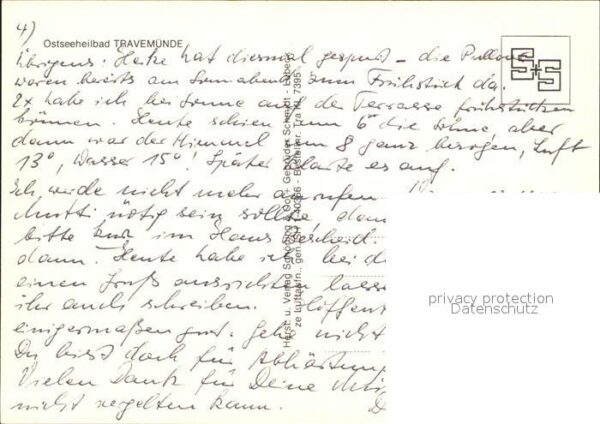 4)
Ostseeheilbad TRAVEMÜNDE
Übrigens: Heike hat diesmal gespurt - die Pullover
waren bereits am Sonnabend zum Frühstück da.
2x habe ich bei Sonne auf der Terrasse frühstücken
können. Heute schien um 6° die Sonne, aber
dann war der Himmel um 8 ganz bezogen, Luft
13°, Wasser 15°! Später klarte es auf.
Ich werde nicht mehr anrufen.
Mutti nötig sein sollte, dann
bitte kurz im Haus Bescheid.
dann. Heute habe ich bei
einen Gruß ausrichten lassen
ihr auch schreiben. Hoffent
einigermaßen gut. Geh nicht
Du bist doch für Abhärtung
Vielen Dank für Deine
nicht vergelten kann. D
S+S
Herst. u. Verlag Schöning & Co + Gebrüder Schmidt - Lübeck
privacy protection
Datenschutz